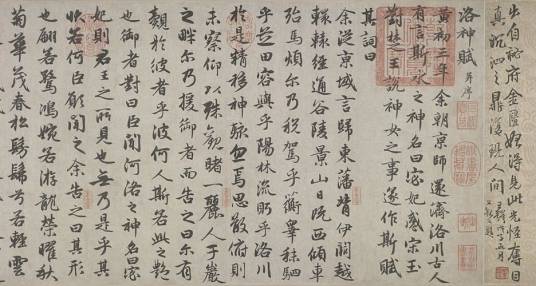 出自秘府金匱始得見此光怪奪目
真泗之鼎復現人間
五月
洛神賦 并序
黃初三年余朝京師還濟洛川古人
有言斯水之神名曰宓妃感宋玉
對楚王說神女之事遂作斯賦
其詞曰
余從京域言歸東藩背伊闕越
轘轅經通谷陵景山日既西傾車
殆馬煩尔乃稅駕乎蘅皋秣駟
乎芝田容與乎陽林流眄乎洛川
於是精移神駭忽焉思散俯則
未察仰以殊觀睹一麗人于巖
之畔尔乃援御者而告之曰尔有
覿於彼者乎彼何人斯若此之豔
也御者對曰臣聞河洛之神名曰宓
妃則君王之所見也無乃是乎其
狀若何臣願聞之余告之曰其形
也翩若驚鴻婉若游龍榮曜秋
菊華茂春松髣髴兮若輕雲